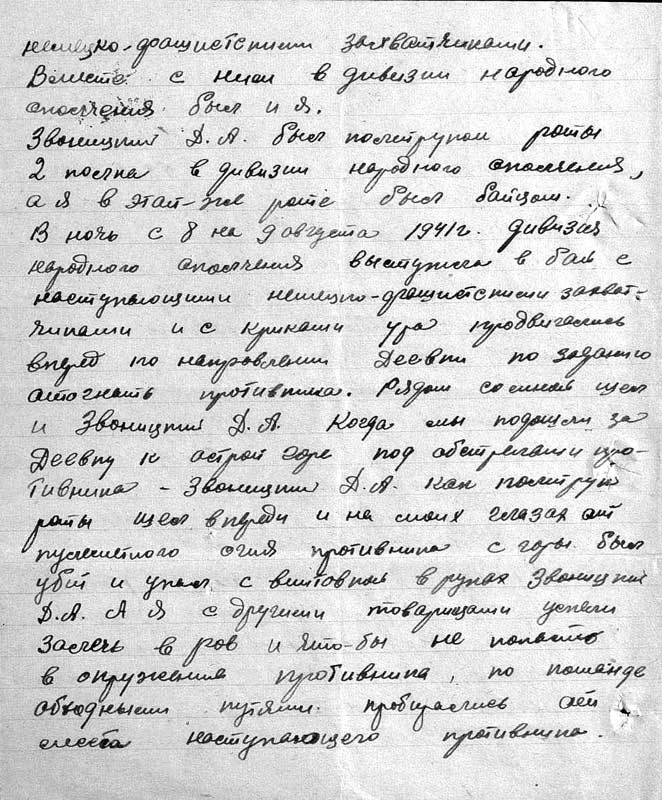 немецко-фашистскими захватчиками.
Вместе с ним в дивизии народного
ополчения был и я.
Звоницкий Д.А. был политруком роты
2 полка в дивизии народного ополчения,
а я в этой-же роте был байцом.
В ночь с 8 на 9 августа 1941г. дивизия
народного ополчения выступила в бой с
наступающими немецко-фашистскими захват-
чиками и с криками ура продвигались
вперед по направлении Деевки по заданию
отогнать противника. Рядом со мной шел
и Звоницкий Д.А. Когда мы подошли за
Деевку к острой горе под обстрелами про-
тивника - Звоницкий Д.А. как политрук
роты шел впереди и на моих глазах от
пулеметного огня противника с горы был
убит и упал с винтовкой в руках Звоницкий
Д.А. А я с другими товарищами успели
залечь в ров и что-бы не попасть
в окружения противника, по команде
обходными путями пробирались от
места наступающего противника.